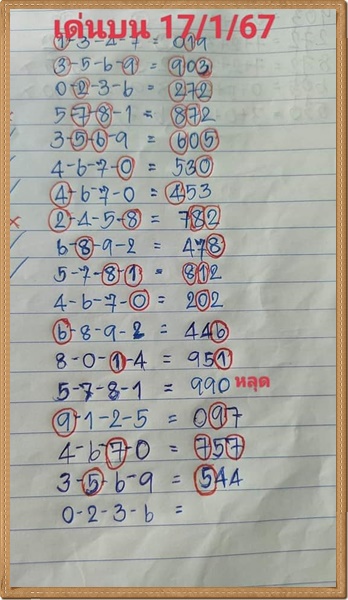 เด่นบน 17/1/67
1-3-4-7 = 019
3-5-6-9 = 903
0-2-3-6 = 272
5-7-8-1 = 872
3-5-6-9 = 605
4-6-7-0 = 530
4-6-7-0 = 453
2-4-5-8 = 782
6-8-9-2 = 478
5-7-8-1 = 812
4-6-7-0 = 202
6-8-9-2 = 446
8-0-1-4 = 951
5-7-8-1 = 990 หลุด
9-1-2-5 = 097
4-6-7-0 = 757
3-5-6-9 = 544
0-2-3-6 =